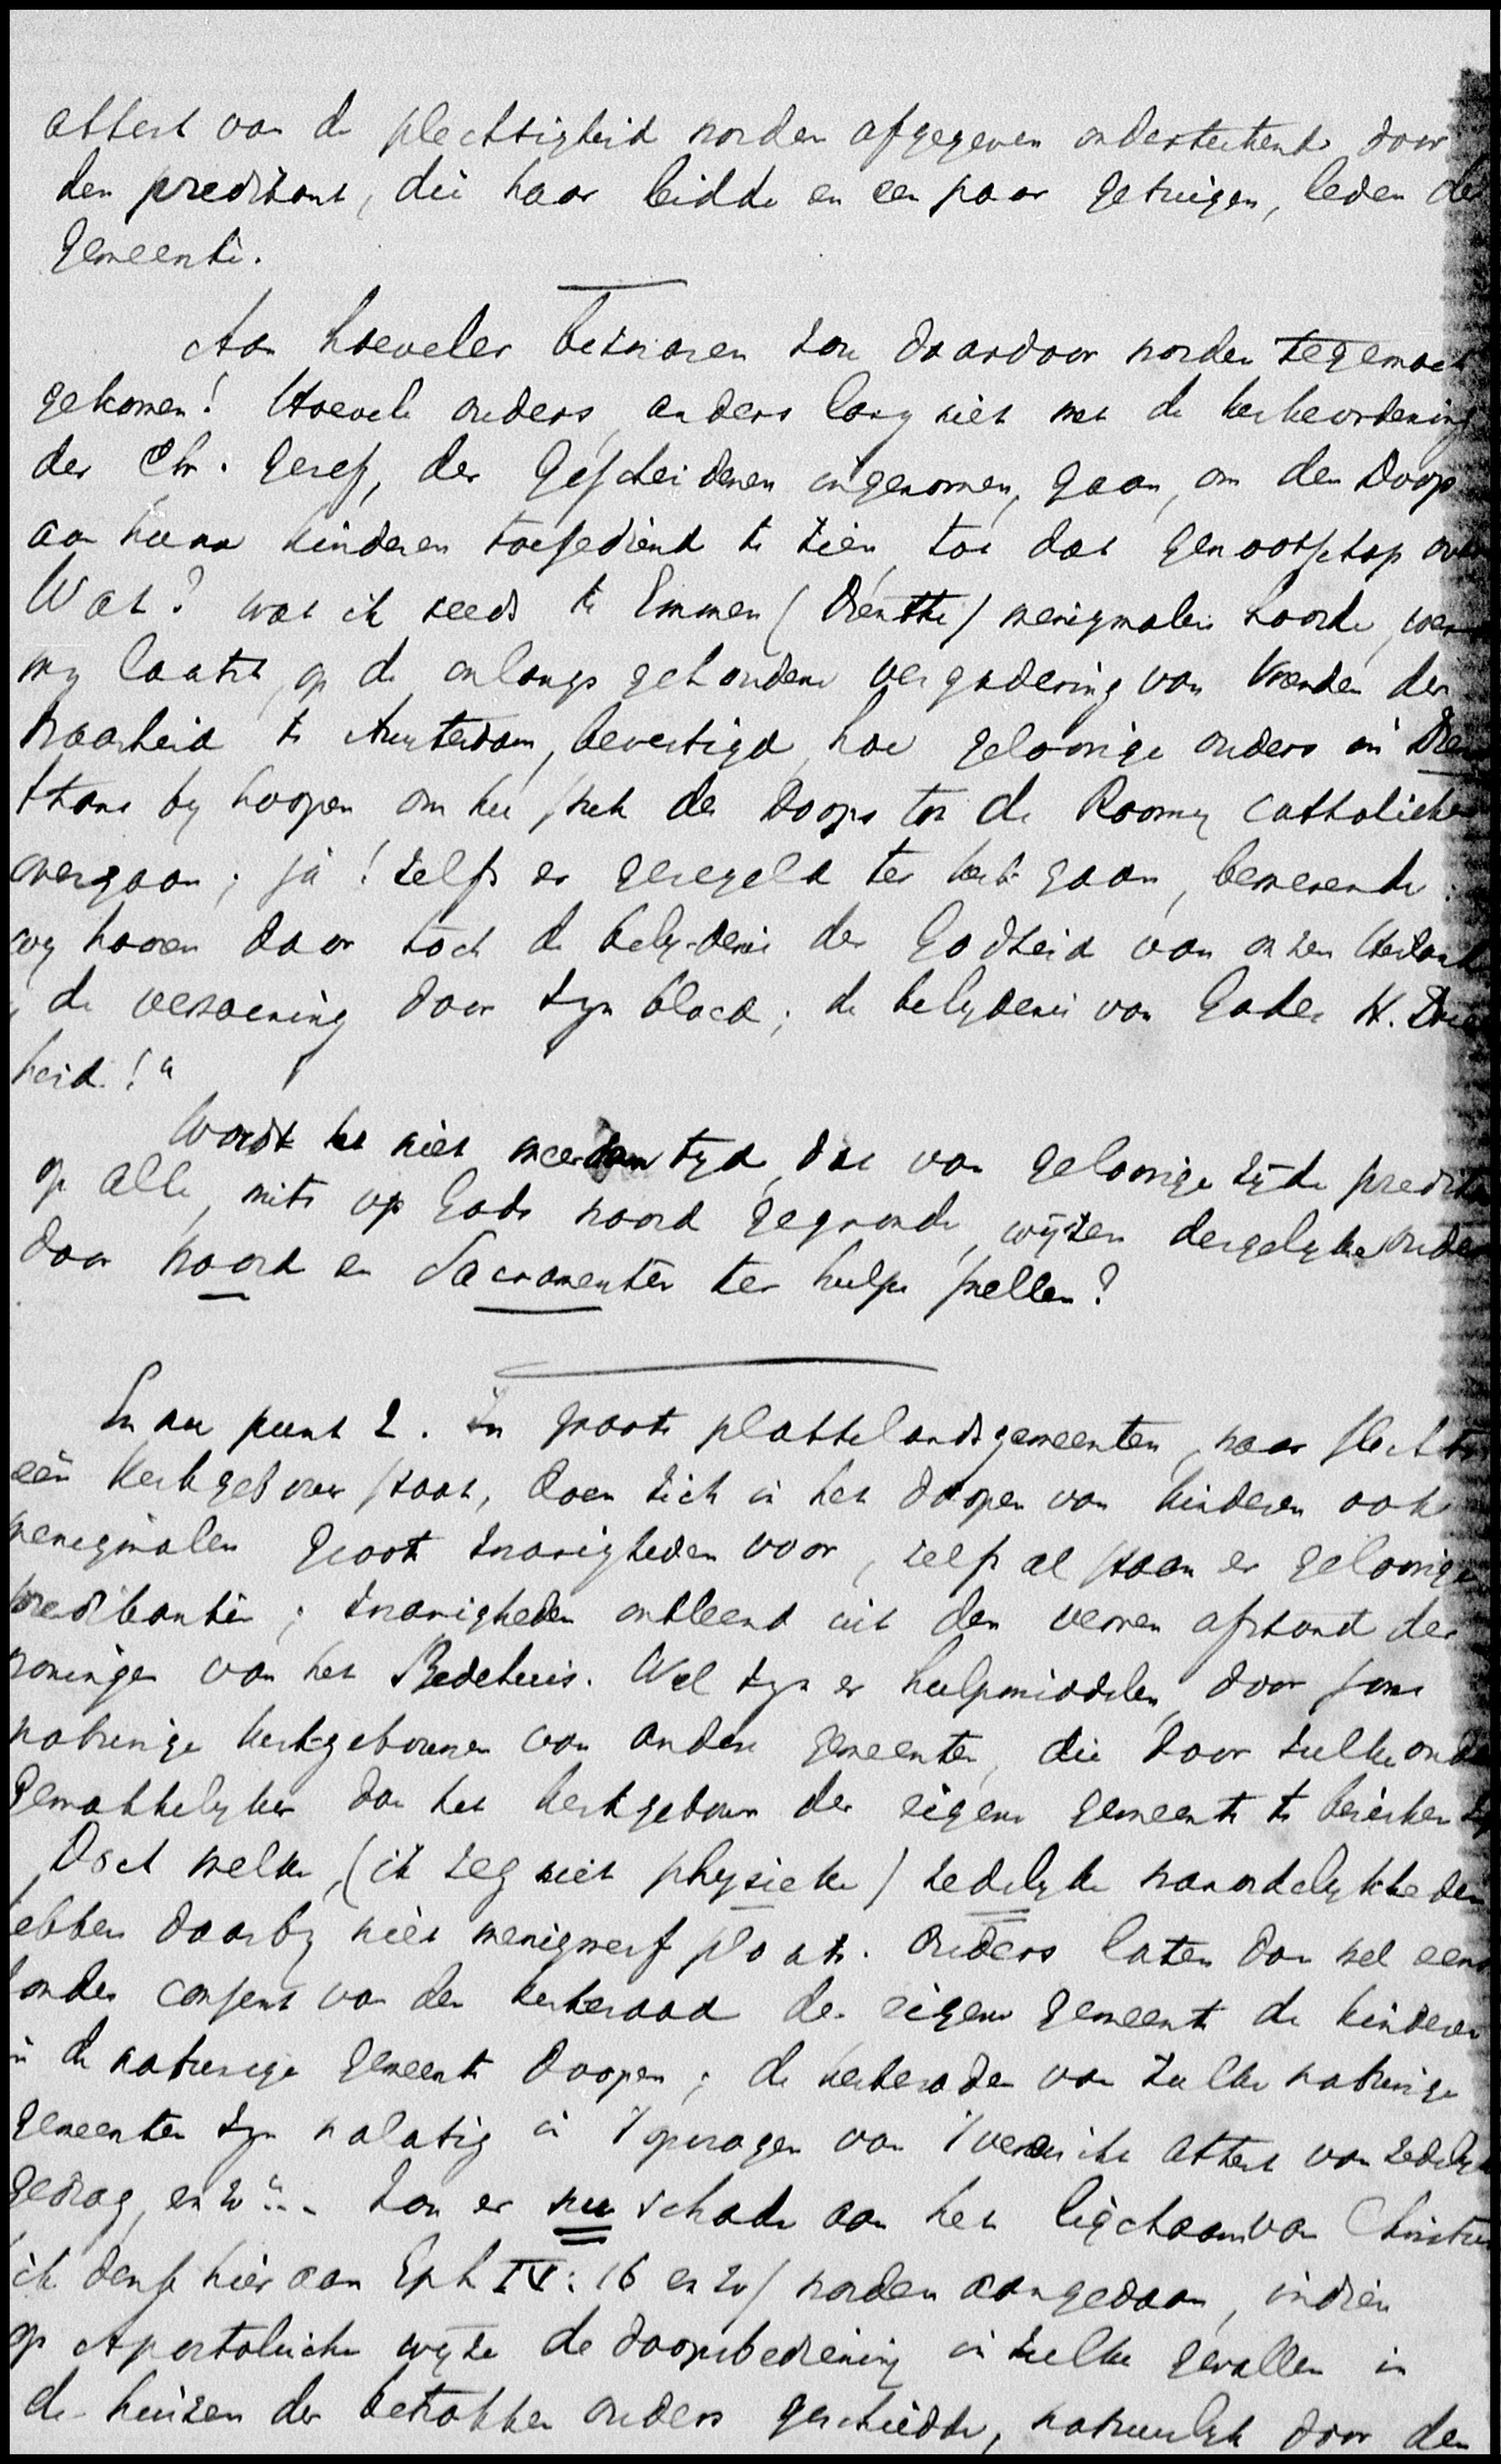 attest van de plechtigheid worden afgegeven onderteekend door
den predikant, die haar leidde en een paar getuigen, leden der
gemeente.
Aan hoeveler bezwaren zou daardoor worden tegemoet
gekomen! Hoevele ouders, anders lang niet met de kerkeordening
der Chr. Geref, der Gescheidenen ingenomen, gaan, om den Doop
aan hunne kinderen toegediend te zien, tot dat genootschap over
Wat? wat ik reeds te Emmen (Drenthe) menigmalen hoorde, werd
my laatst, op de onlangs gehoudene vergadering van Vrienden der
Waarheid te Amsterdam, bevestigd, hoe geloovige ouders in Dren
thans by hoopen om het stuk des Doops tot de Roomsch Catholieken
overgaan; ja! zelfs er geregeld ter kerk gaan, bewerende:
wy hooren daar toch de belydenis der Godheid van onzen Heiland
, de verzoening door zyn bloed; de belydenis van Gods H. Drie
heid!"
Wordt het niet meer dan tyd, dat van geloovige zijde predik
op alle, mits op Gods woord gegronde, wijzen dergelyke ouders
door woord en Sacramenten ter hulpe snellen?
En nu punt 2. In groote plattelandsgemeenten, waar slechts
een kerkgebouw staat, doen zich in het doopen van kinderen ook
menigmalen groote zwarigheden voor, zelfs al staan er geloovige
predikanten; zwarigheden ontleend uit den verren afstand der
woningen van het Bedehuis. Wel zyn er hulpmiddelen, door soms
naburige kerkgebouwen van andere gemeenten, die door zulke ouders
gemakkelyker dan het kerkgebouw der eigene gemeente te bereiken zyn
Doch welke, (ik zeg niet physieke) zedelyke onordelykheden
hebben daarby niet menigwerf plaats. Ouders laten dan wel eens
zonder consent van den kerkeraad der eigene gemeente de kinderen
in de naburige gemeente doopen; de kerkeraden van zulke naburige
gemeenten zyn nalatig in 't opvragen van 't vereischte attest van zedelyk
gedrag, enz... Zou er nu schade aan het ligchaam van Christus
ik denk hier aan Eph IV: 16 enz) worden aangedaan, indien
op Apostolische wyze de doopsbediening in zulke gevallen in
de huizen der betrokken ouders geschiedde, natuurlyk door den